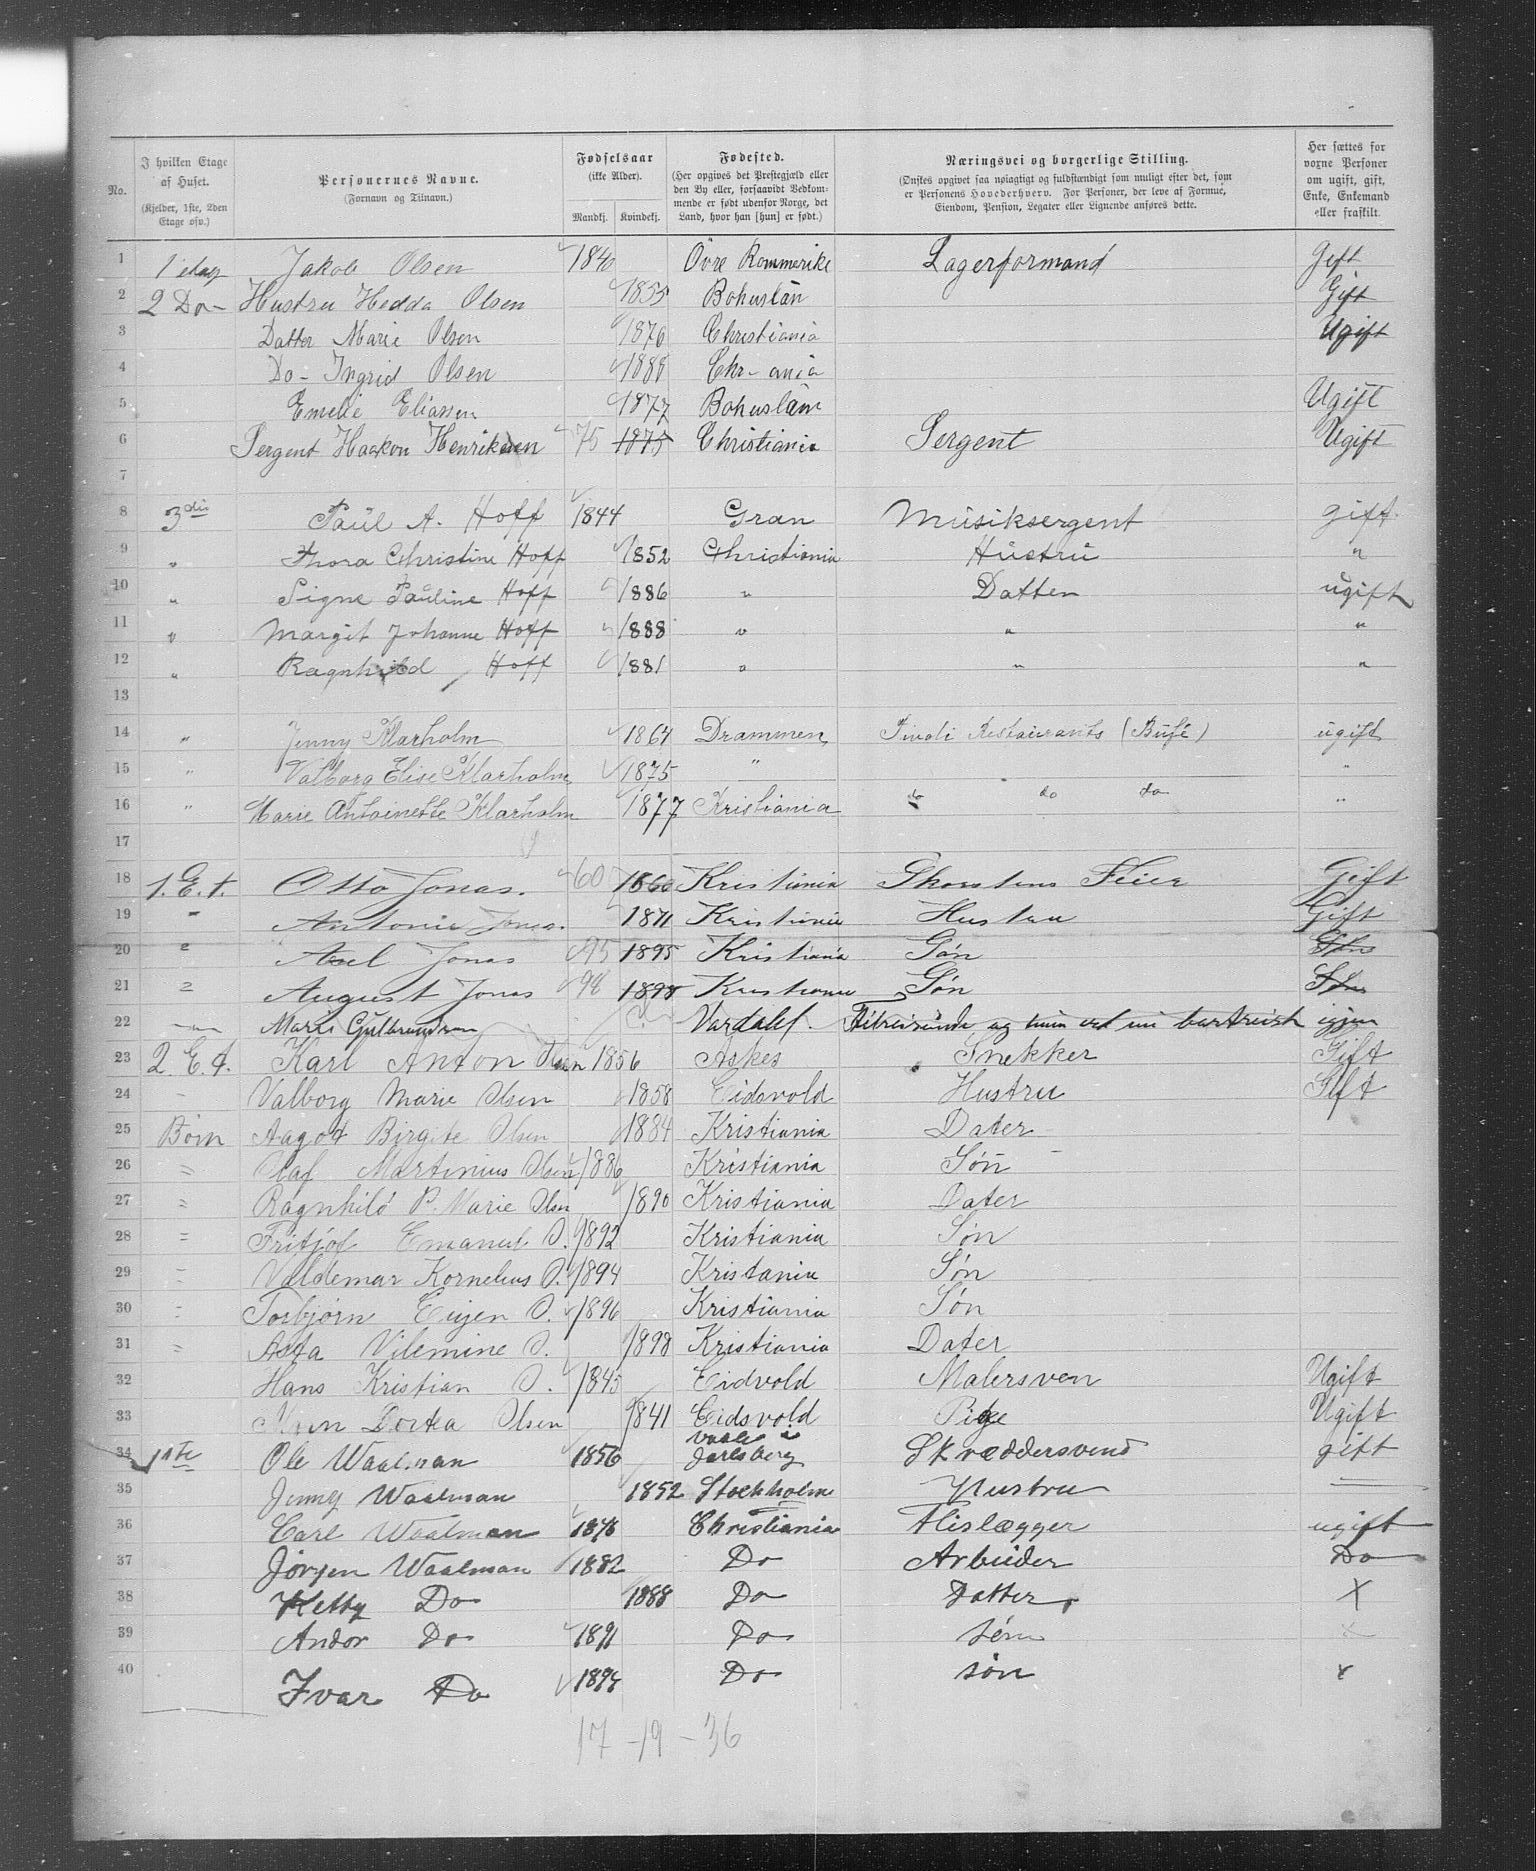 No. | I hvilken Etage af Huset. (Kjelder, 1ste, 2den Etage osv.) | Personernes Navne. (Fornavn og Tilnavn.) | Fødselsaar (ikke Alder). Mandkj. | Kvindekj. | Fødested. (Her opgives det Prestegjæld eller den By eller, forsaavidt Vedkommende er født udenfor Norge, det Land, hvor han [hun] er født.) | Næringsvei og borgerlige Stilling. (Ønskes opgivet saa nøiagtigt og fuldstændigt som muligt efter det, som er Personens Hovederhverv. For Personer, der leve af Formue, Eiendom, Pension, Legater eller Lignende anføres dette. | Her sættes for voxne Personer om ugift, gift, Enke, Enkemand eller fraskilt.
1 1 etag Jakob Olsen 1840 Övre Rommerike Lagerformand Gift
2 2 Do- Hustru Hedda Olsen 1855 Bohuslän Gift
3 Datter Marie Olsen 1876 Christiania Ugift
4 Do- Ingrid Olsen 1888 Chr-ania
5 Emelie Eliassen 1877 Bohuslän Ugift
6 Sergent Haakon Henriksen 75 1875 Christiania Sergent Ugift
7
8 3die Paul A. Hoff 1844 Gran Musiksergent gift.
9 " Thora Christine Hoff 1852 Christiania Hustru "
10 " Signe Pauline Hoff 1886 " Datter ugift
11 " Margit Johanne Hoff 1888 " " "
12 " Ragnhild Hoff 1881 " " "
13
14 " Jenny Klarholm 1864 Drammen Tivoli Restaurants (Bufé) ugift
15 " Valborg Elise Klarholm 1875 " "
16 " Marie Antoinette Klarholm 1877 Kristiania do do do "
17
18 1. Et. Otto Jonas. 60 1860 Kristiania Skorstens Feier Gift
19 " Antonie Jonas. 1871 Kristiania Hustru Gift
20 " Axel Jonas 95 1895 Kristiania Søn
21 " August Jonas 98 1898 Kristiania Søn
22 Marie Gulbrandsen Vardalsf. igjen
23 2. Et. Karl Anton Olsen 1856 Askes Snekker Gift
24 - Valborg Marie Olsen 1858 Eidsvold Hustru Gift
25 Børn Aagot Birgite Olsen 1884 Kristiania Dater
26 " Olaf Martinius Olsen 1886 Kristiania Søn
27 " Ragnhild P. Marie Olsen 1890 Kristiania Dater
28 " Fritjof Emanuel O. 1892 Kristiania Søn
29 " Valdemar Kornelius O. 1894 Kristania Søn
30 " Torbjørn Eugen O. 1896 Kristiania Søn
31 " Asta Vilemine O. 1898 Kristiania Dater
32 Hans Kristian O. 1845 Eidvold Malersven Ugift
33 Dortea Olsen 1841 Eidsvold Pige Ugift
34 1ste Ole Waalman 1856 Vaale i Jarlsberg Skræddersvend gift
35 Jenny Waalman 1852 Stockholm Hustru
36 Carl Waalman 1878 Christiania Flislægger ugift
37 Jørgen Waalman 1882 Do Arbeider Do
38 Ketty Do 1888 Do Datter X
39 Andor Do 1891 Do Søn X
40 Ivar Do 1894 Do Søn x
17 - 19 - 36